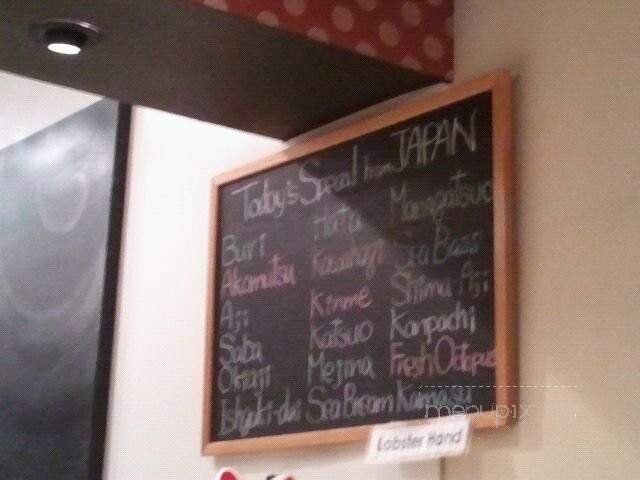 Today's Special from JAPAN
Buri Hata Managatsuo
Akamutsu Kasahagi Sea Bass
Aji Kinme Shima Aji
Saba Katsuo Kanpachi
Okaji Mejina Fresh Octopus
Ishgaki-dai Sea Bream Kamasu
menupix
Lobster Hand